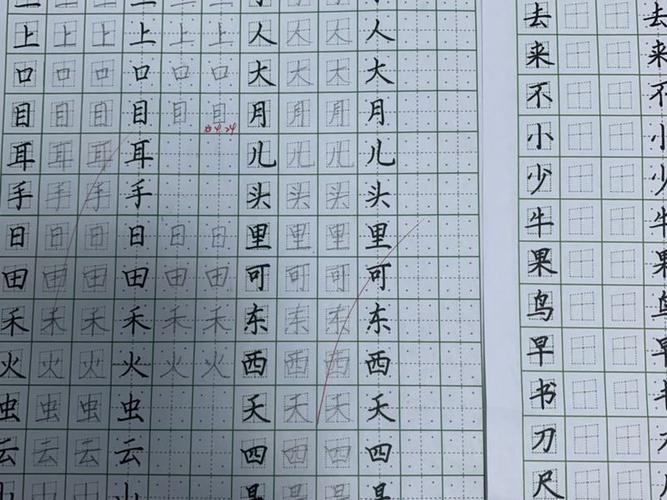 上上上上上上人人人人
口口口口口口大大大大
目目目目目目月月月月
耳耳耳耳儿儿儿儿
手手手手头头头头
日日日日日日里里里里
田田田田田田可可可可
禾禾禾禾禾禾东东东东
火火火火火火西西西西
虫虫虫虫天天天天
云云云云四四四四
去 去
来 来
不 不
小 小
少 少
牛 牛
果 果
鸟 鸟
早 早
书 书
刀 刀
尺 尺